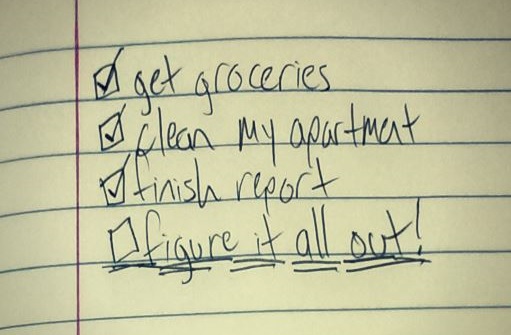 ☑ get groceries
☑ clean my apartment
☑ finish report
☐ figure it all out!